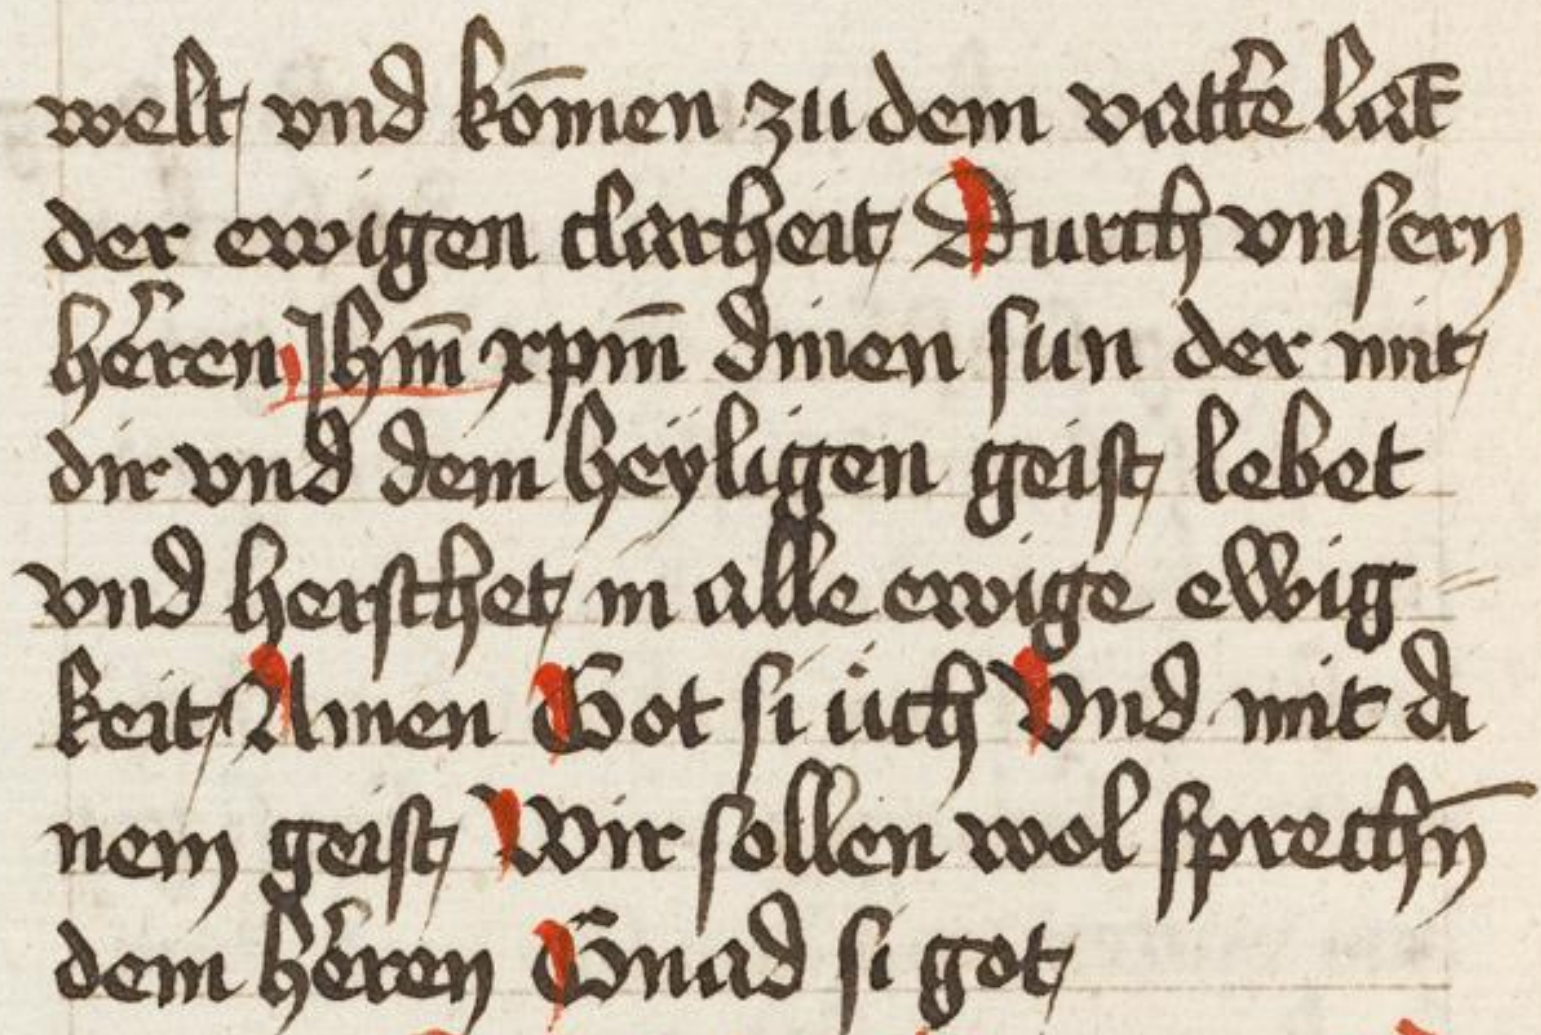 welt vnd kōmen zu dem vatt͛e lāt
der ewigen clarheit Durch vnsern
herren Jhm̄ xpm̄ dinen sun der mit
dir vnd dem heÿligen geist lebet
vnd herschet in alle ewige ewig
keit Amen Got si üch Vnd mit di
nem geist Wir sollen wol sprechn̄
dem herren Gnad si got